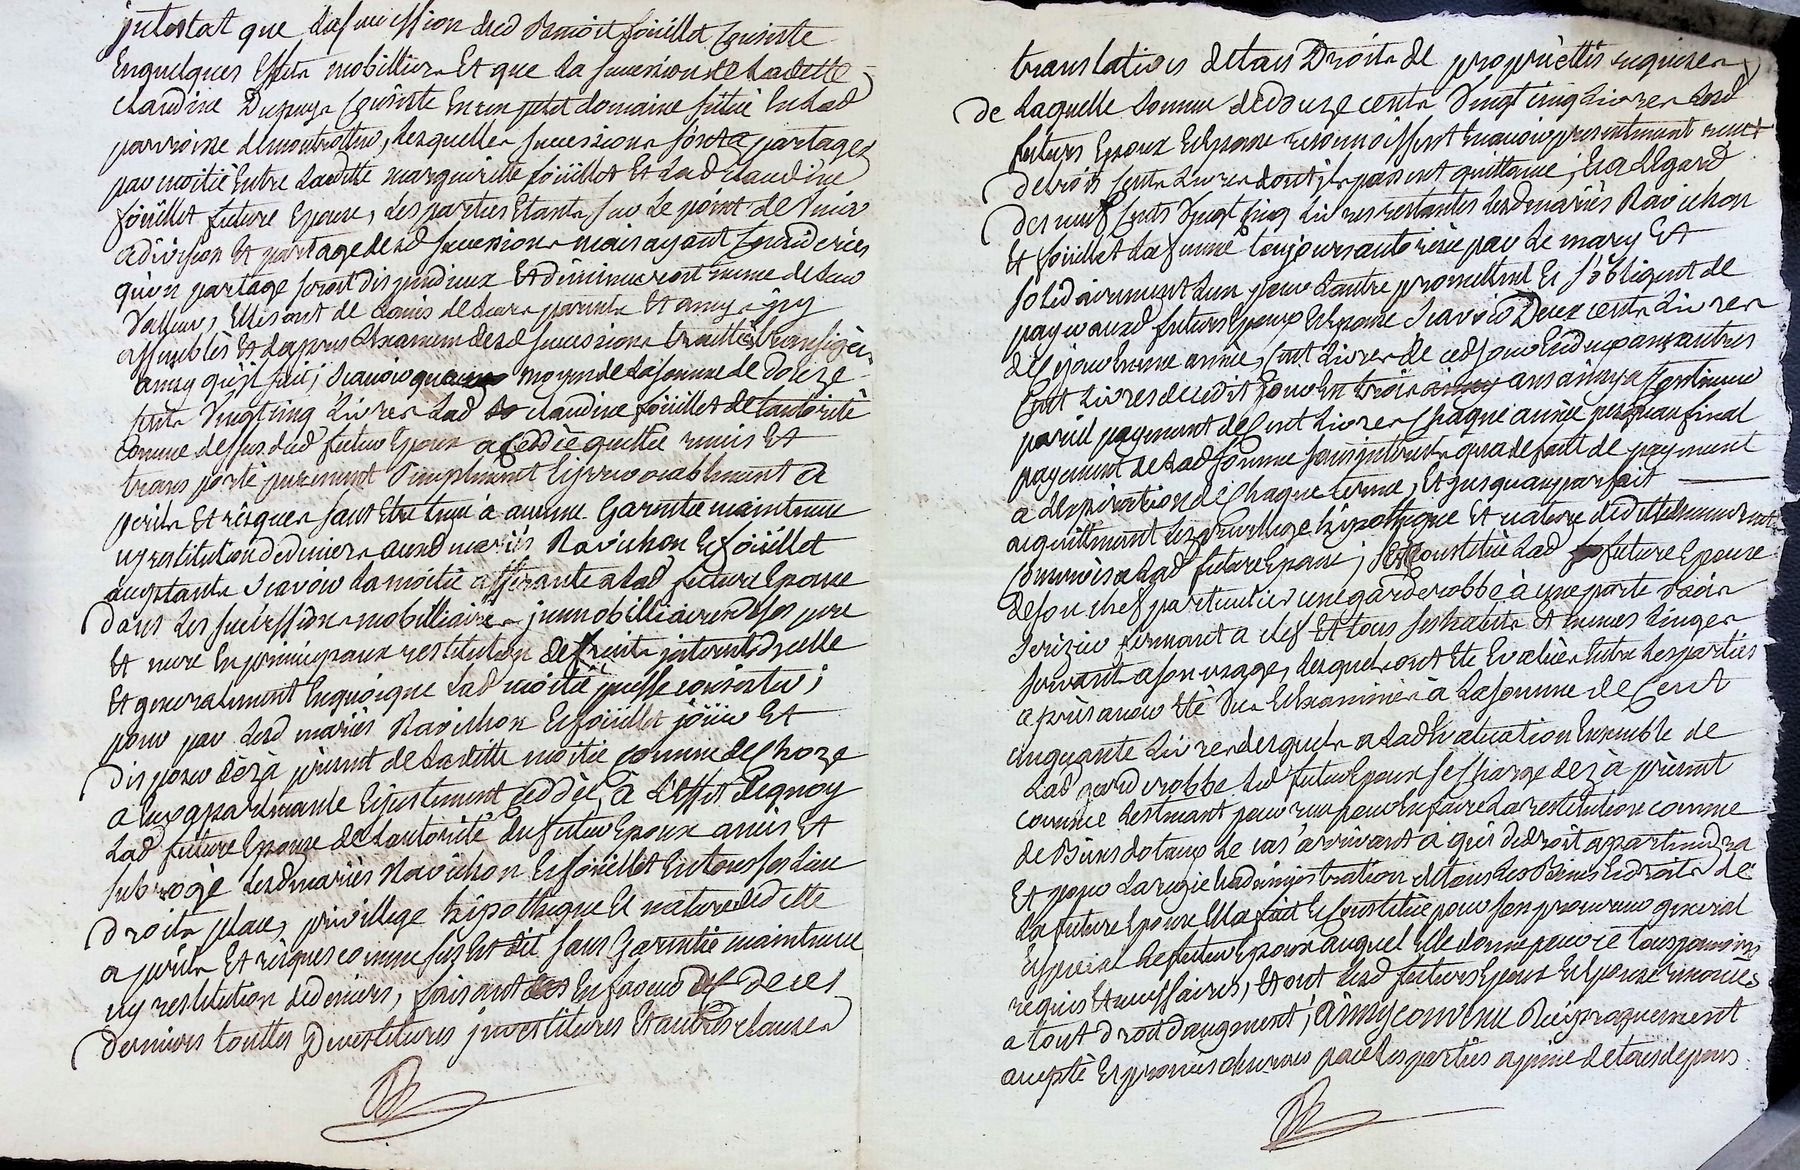 intestat que la succession dud Benoit foüillet Consiste
En quelques Effets mobilliers Et que la succession de Laditte
claudine Dupuys Consiste En un petit domaine situé En Lad
parroisse de montrottier, Lesquelles successions sont a partager
par moitié Entre Laditte marguiritte foüillet Et Lad claudine
foüillet future Epouse, Les parties Etants sur Le point de venir
a division Et partage desd successions mais ayant Considerées
qu'un partage seroit dispendieux Et diminueroit meme de Leur
Valleur, Elles ont de L'avis de Leurs parents Et amys icy
assemblés Et d'apres L'Examen desd successions traittés transigées
ainsy qu'il suit; scavoir qu'au moyen de La somme de Douze
cents vingt cinq Livres Lad claudine foüillet de L'autorité
comme dessus dud futur Epoux a Ceddée quittée remis Et
transporté purement simplement Et irrevocablement a
perils Et risques sans Etre tenue à aucune Garentie maintenue
ny restitution de deniers auxd mariés Ravichon Et foüillet
acceptants scavoir La moitié afférante a Lad future Epouse
Dans Les successions mobilliaires immobilliaires de ses pere
Et mere En principaux restitution de fruits interets d'icelle
Et generalement En quoique Lad moitié puisse consister;
pour par Lesd mariés Ravichon Et foüillet joüir Et
disposer dèzà present de Laditte moitié comme de Choze
a Eux apartenante Et justement Ceddée, à L'Effet Dequoy
Lad future Epouse de L'autorité du futur Epoux a mis Et
subrogé Lesd mariés Ravichon Et foüillet En tous ses Lieu
droits place, privillege hipotheque Et nature de ditte
a perils Et risques comme sus Est dit sans Garentie maintenue
ny restitution de deniers, faisant En faveur de ces
derniers touttes Devestitures investitures Et autres clauses
translatives de tous Droits de proprièttés requises
de Laquelle somme de Douze cents vingt cinq Livres Lesd
futurs Epoux Et Epouse reconnoissent En avoir presentement reçu
de trois Cents Livres dont ils passent quittance; Et a L'Egard
des neuf Cents vingt cinq Livres restantes Lesd mariés Ravichon
Et foüillet La femme toujours autorisée par Le mary Et
solidairement L'un pour L'autre promettent Et s'obligent de
payer auxd futurs Epoux Et Epouse scavoir Deux cents Livres
de Ce jour En une année, Cent Livres de ced jour En deux ans autres
Cent Livres de cedit jour En trois ans ainsy a Continuer
pareil payement de Cent Livres Chaque année jusqu'au final
payement de Lad somme sans interets qu'a defaut de payement
a L'Expiration de Chaque terme, Et jusqu'au parfait
acquittement Les privillege hipotheque Et nature de ditte demeurant
Conservés a Lad future Epouse; se Constitüe Lad future Epouse
de son chef particulier une garderobbe à une porte Bois
Serizier fermant a clef Et tous ses habits Et menus Linges
servant a son usage, Lesquels ont Eté Evalüés Entre Les parties
après avoir Eté vus Et Examinés à La somme de Cent
cinquante Livres desquels a Lad Evaluation Ensemble de
Lad garderobbe Led futur Epoux se Charge dez à present
comme Les tenant pour reçu pour En faire La restitution comme
de Biens dotaux Le cas arrivant a qui de droit apartiendra
Et pour La regie Et administration de tous Les Biens Et droits de
La future Epouse Elle fait Et Constitüe pour son procureur general
Et special Le futur Epoux auquel Elle donne pour ce tous pouvoirs
requis Et necessaires, Et ont Lesd futurs Epoux Et Epouse renoncés
a tout droit d'augment; ainsy convenu Réciproquement
accepté Et promis observer par Les parties a peine de tous depens